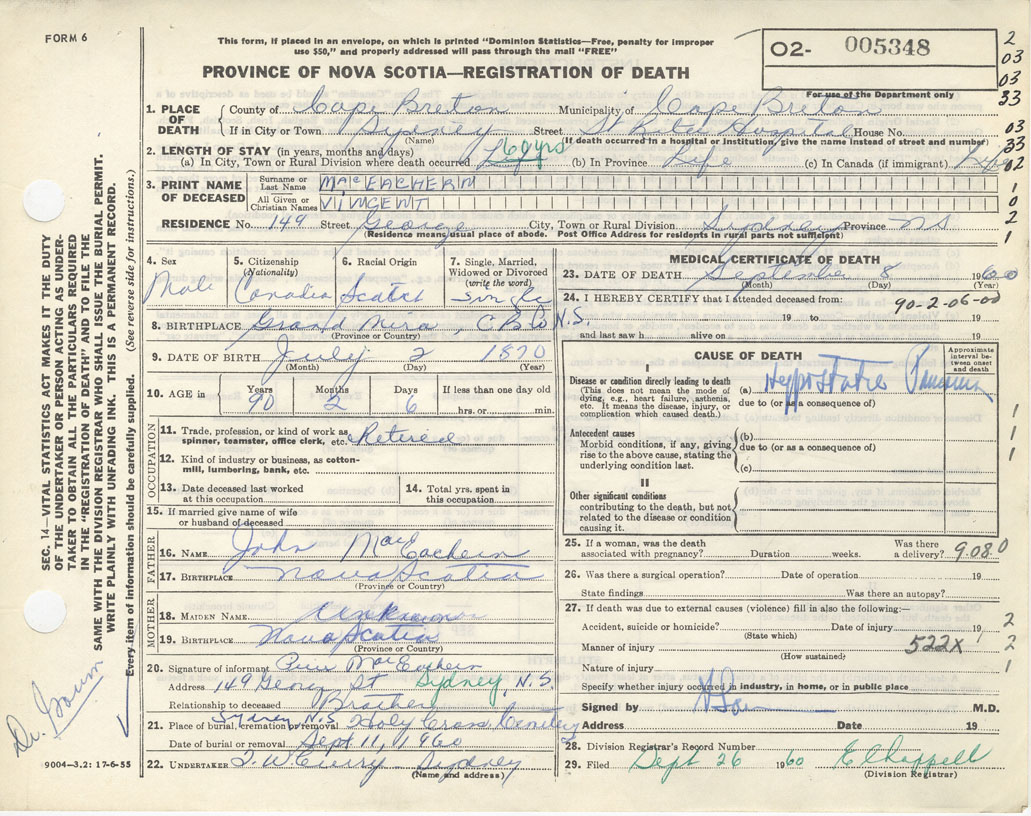 FORM 6
This form, if placed in an envelope, on which is printed "Dominion Statistics—Free, penalty for improper
use $50," and properly addressed will pass through the mail "FREE"
PROVINCE OF NOVA SCOTIA—REGISTRATION OF DEATH
O2- 005348
For use of the Department only
2
03
03
33
03
33
02
1
0
2
1
1. PLACE OF DEATH { County of Cape Breton Municipality of Cape Breton
If in City or Town Sydney Street St Rita Hospital House No.
(Name) (If death occurred in a hospital or institution, give the name instead of street and number)
2. LENGTH OF STAY (in years, months and days)
(a) In City, Town or Rural Division where death occurred 60 yrs (b) In Province Life (c) In Canada (if immigrant) Life
3. PRINT NAME OF DECEASED { Surname or Last Name MacEACHERN
All Given or Christian Names VINCENT
RESIDENCE No. 149 Street George City, Town or Rural Division Sydney Province NS
(Residence means usual place of abode. Post Office Address for residents in rural parts not sufficient)
4. Sex Male
5. Citizenship (Nationality) Canadian
6. Racial Origin Scotch
7. Single, Married, Widowed or Divorced (write the word) Single
8. BIRTHPLACE Grand Mira, C.B. Co N.S,
(Province or Country)
9. DATE OF BIRTH July 2 1870
(Month) (Day) (Year)
10. AGE in Years 90 Months 2 Days 6 If less than one day old hrs. or min.
OCCUPATION
11. Trade, profession, or kind of work as spinner, teamster, office clerk, etc. Retired
12. Kind of industry or business, as cotton-mill, lumbering, bank, etc.
13. Date deceased last worked at this occupation
14. Total yrs. spent in this occupation
15. If married give name of wife or husband of deceased
FATHER
16. NAME John MacEachern
17. BIRTHPLACE Nova Scotia
(Province or Country)
MOTHER
18. MAIDEN NAME Unknown
19. BIRTHPLACE Nova Scotia
(Province or Country)
20. Signature of informant MacEachern
Address 149 George St Sydney, N.S.
Relationship to deceased Brother
21. Place of burial, cremation or removal Sydney N.S Holy Cross Cemetery
Date of burial or removal Sept 11, 1960
22. UNDERTAKER T. W. Curry Sydney
(Name and address)
MEDICAL CERTIFICATE OF DEATH
23. DATE OF DEATH September 8 1960
(Month) (Day) (Year)
24. I HEREBY CERTIFY that I attended deceased from: 90-2-06-00
19 to 19
and last saw h alive on 19
CAUSE OF DEATH
Approximate interval between onset and death
I
Disease or condition directly leading to death
(This does not mean the mode of dying, e.g., heart failure, asthenia, etc. It means the disease, injury, or complication which caused death.)
(a) Hypostatic
due to (or as a consequence of)
Antecedent causes
Morbid conditions, if any, giving rise to the above cause, stating the underlying condition last.
(b)
due to (or as a consequence of)
(c)
II
Other significant conditions contributing to the death, but not related to the disease or condition causing it.
1
1
1
25. If a woman, was the death associated with pregnancy? Duration weeks. Was there a delivery? 9.080
26. Was there a surgical operation? Date of operation 19
State findings Was there an autopsy?
27. If death was due to external causes (violence) fill in also the following:—
Accident, suicide or homicide? Date of injury 19 2
(State which)
Manner of injury 522X 2
(How sustained)
Nature of injury 1
Specify whether injury occurred in industry, in home, or in public place
Signed by M.D.
Address Date 19
28. Division Registrar's Record Number
29. Filed Sept 26 1960 E Chappell
(Division Registrar)
SEC. 14—VITAL STATISTICS ACT MAKES IT THE DUTY
OF THE UNDERTAKER OR PERSON ACTING AS UNDER-
TAKER TO OBTAIN ALL THE PARTICULARS REQUIRED
IN THE "REGISTRATION OF DEATH" AND FILE THE
SAME WITH THE DIVISION REGISTRAR WHO SHALL ISSUE THE BURIAL PERMIT.
WRITE PLAINLY WITH UNFADING INK. THIS IS A PERMANENT RECORD.
Every item of information should be carefully supplied. (See reverse side for instructions.)
Dr.
9004—3.2: 17-6-55